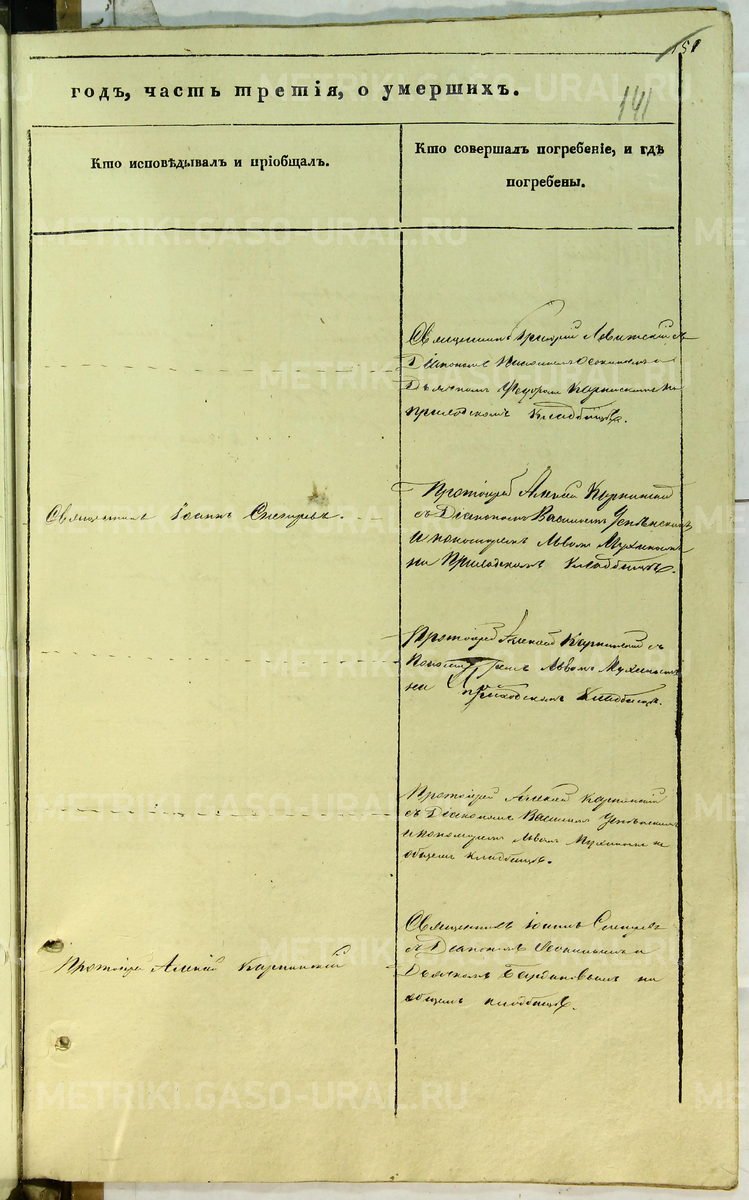 151
годъ, часть третія, о умершихъ.
141
Кто исповѣдывалъ и пріобщалъ.
Кто совершалъ погребеніе, и гдѣ
погребены.
Священникъ Григорій Левитскій съ
Діакономъ
Дьячкомъ Федоромъ Карпинскимъ на
приходскомъ кладбищѣ.
Священникъ Іоаннъ Снегиревъ.
Протоіерей Алексій Карпинскій
съ Діакономъ Василіемъ Успенскимъ
и пономаремъ Львомъ Мухинымъ
на Приходскомъ кладбищѣ.
Протоіерей Алексій Карпинскій съ
Пономаремъ Львомъ Мухинымъ
на приходскомъ кладбищѣ.
Протоіерей Алексій Карпинскій
съ Діакономъ Василіемъ Успенскимъ
и пономаремъ Львомъ Мухинымъ на
общемъ кладбищѣ.
Протоіерей Алексій Карпинскій
Священникъ Іоаннъ Снегиревъ
съ Діакономъ и
Дьячкомъ на
общемъ кладбищѣ.
METRIKI.GASO-URAL.RU